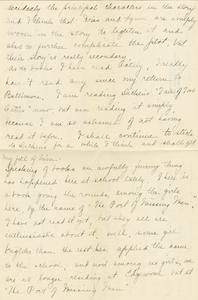 decidedly the principal characters in the story
and I think that "Dran and Lynn are simply
woven in the story to lighten it and
also to further complicate the plot, but
their story is really secondary.
As to books I have had lately, I really
haven't read any since my return to
Baltimore. I am reading Dickens' "Tale of Two
Cities" now, but am reading it simply
because I am so ashamed of not having
read it before. I shall continue to stick
to Dickens for a while I think and shall get
my fill of him.
Speaking of books an awfully funny thing
has happened here at school lately. There is
a book going the rounds among the girls
here, by the name of "The Port of Missing Men."
I have not read it yet, but they all are
enthusiastic about it, well, some girl
brighter than the rest has applied the name
to the school, and now among us girls, we
are no longer residing at Edgeworth but at
"The Port of Missing Men."